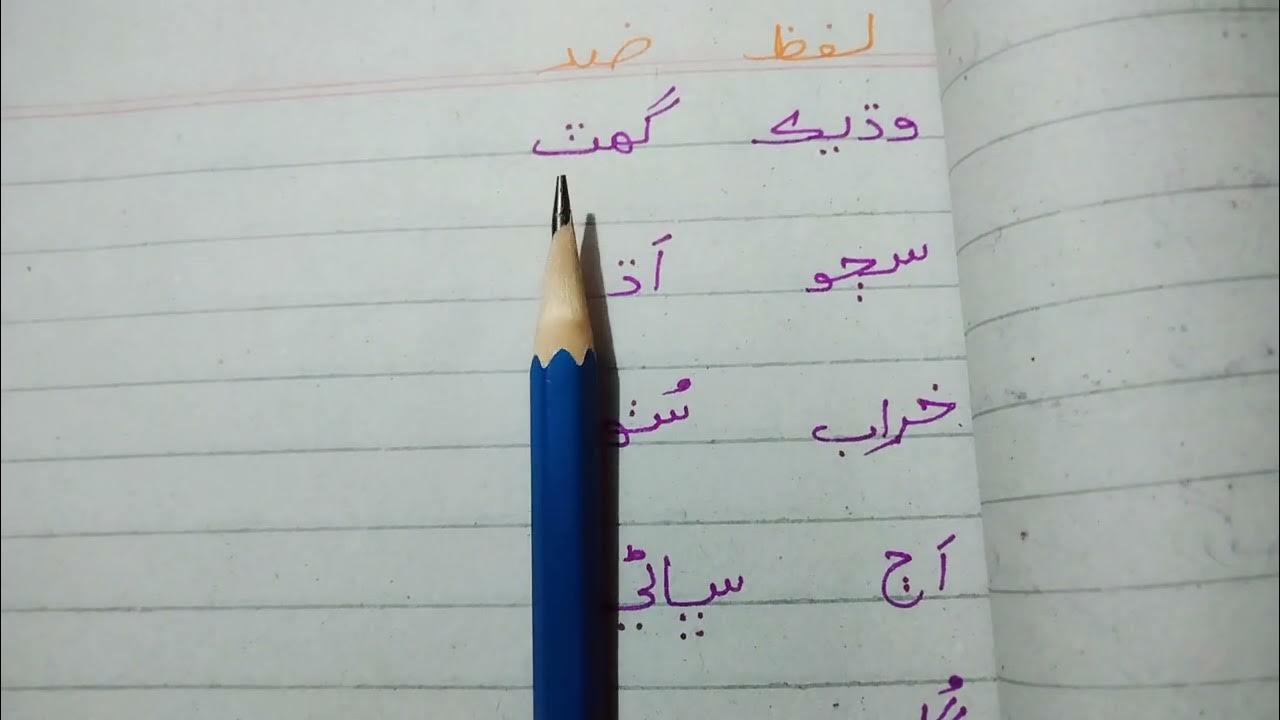 لفظ ضد
وڌيڪ گهٽ
سڄو اَڌ
خراب سُٺو
اَڄ سڀاڻي